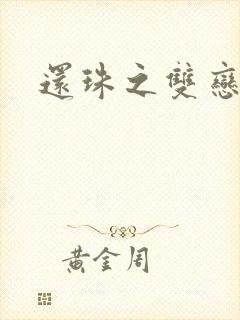 還珠之雙戀
黃金周